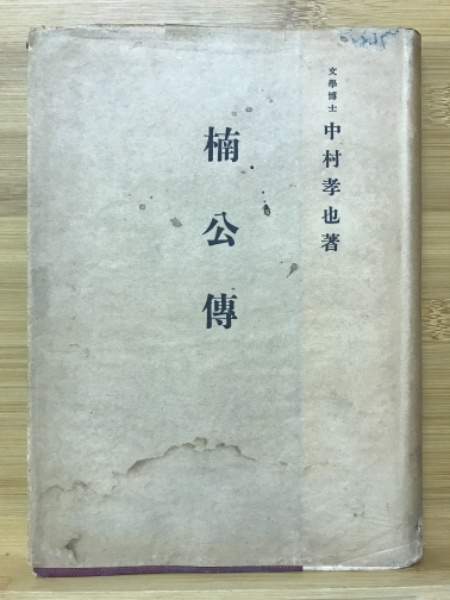 文學博士 中村孝也著
楠公傳